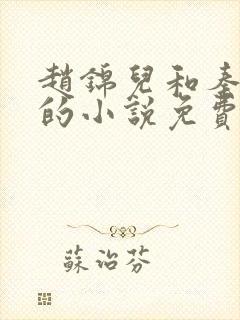 趙錦兒和秦
的小說免費
蘇治芬